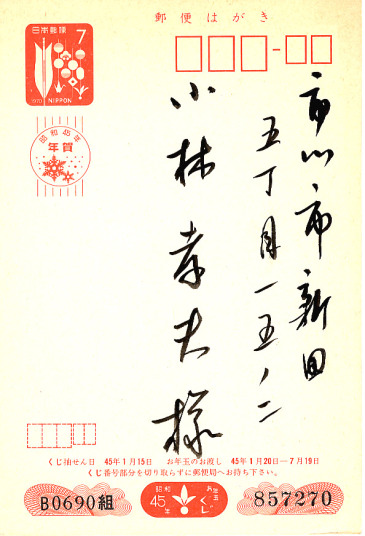 郵便はがき
日本郵便
7
1970 NIPPON
昭和45年
年賀
市川市新田
五丁目一五ノ二
小林孝夫様
くじ抽せん日 45年1月15日 お年玉のお渡し 45年1月20日―7月19日
くじ番号部分を切り取らずに郵便局へお持ち下さい。
B0690組
昭和45年
お年玉くじ
857270